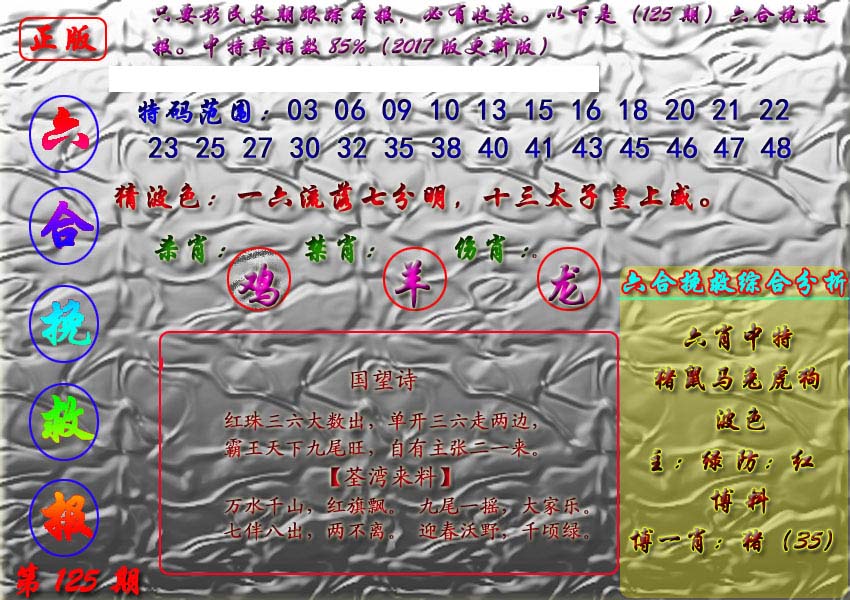 只要彩民长期跟踪本报，必有收获。以下是（125期）六合挽救
报。中特率指数85%（2017版更新版）
正版
六合挽救报
第125期
特码范围：03 06 09 10 13 15 16 18 20 21 22
23 25 27 30 32 35 38 40 41 43 45 46 47 48
猜波色：一六流落七分明，十三太子皇上威。
杀肖：鸡 禁肖：羊 伤肖：龙。
国望诗
红珠三六大数出，单开三六走两边，
霸王天下九尾旺，自有主张二一来。
【荃湾来料】
万水千山，红旗飘。 九尾一摇，大家乐。
七伴八出，两不离。 迎春沃野，千顷绿。
六合挽救综合分析
六肖中特
猪鼠马兔虎狗
波色
主：绿防：红
博料
博一肖：猪（35）